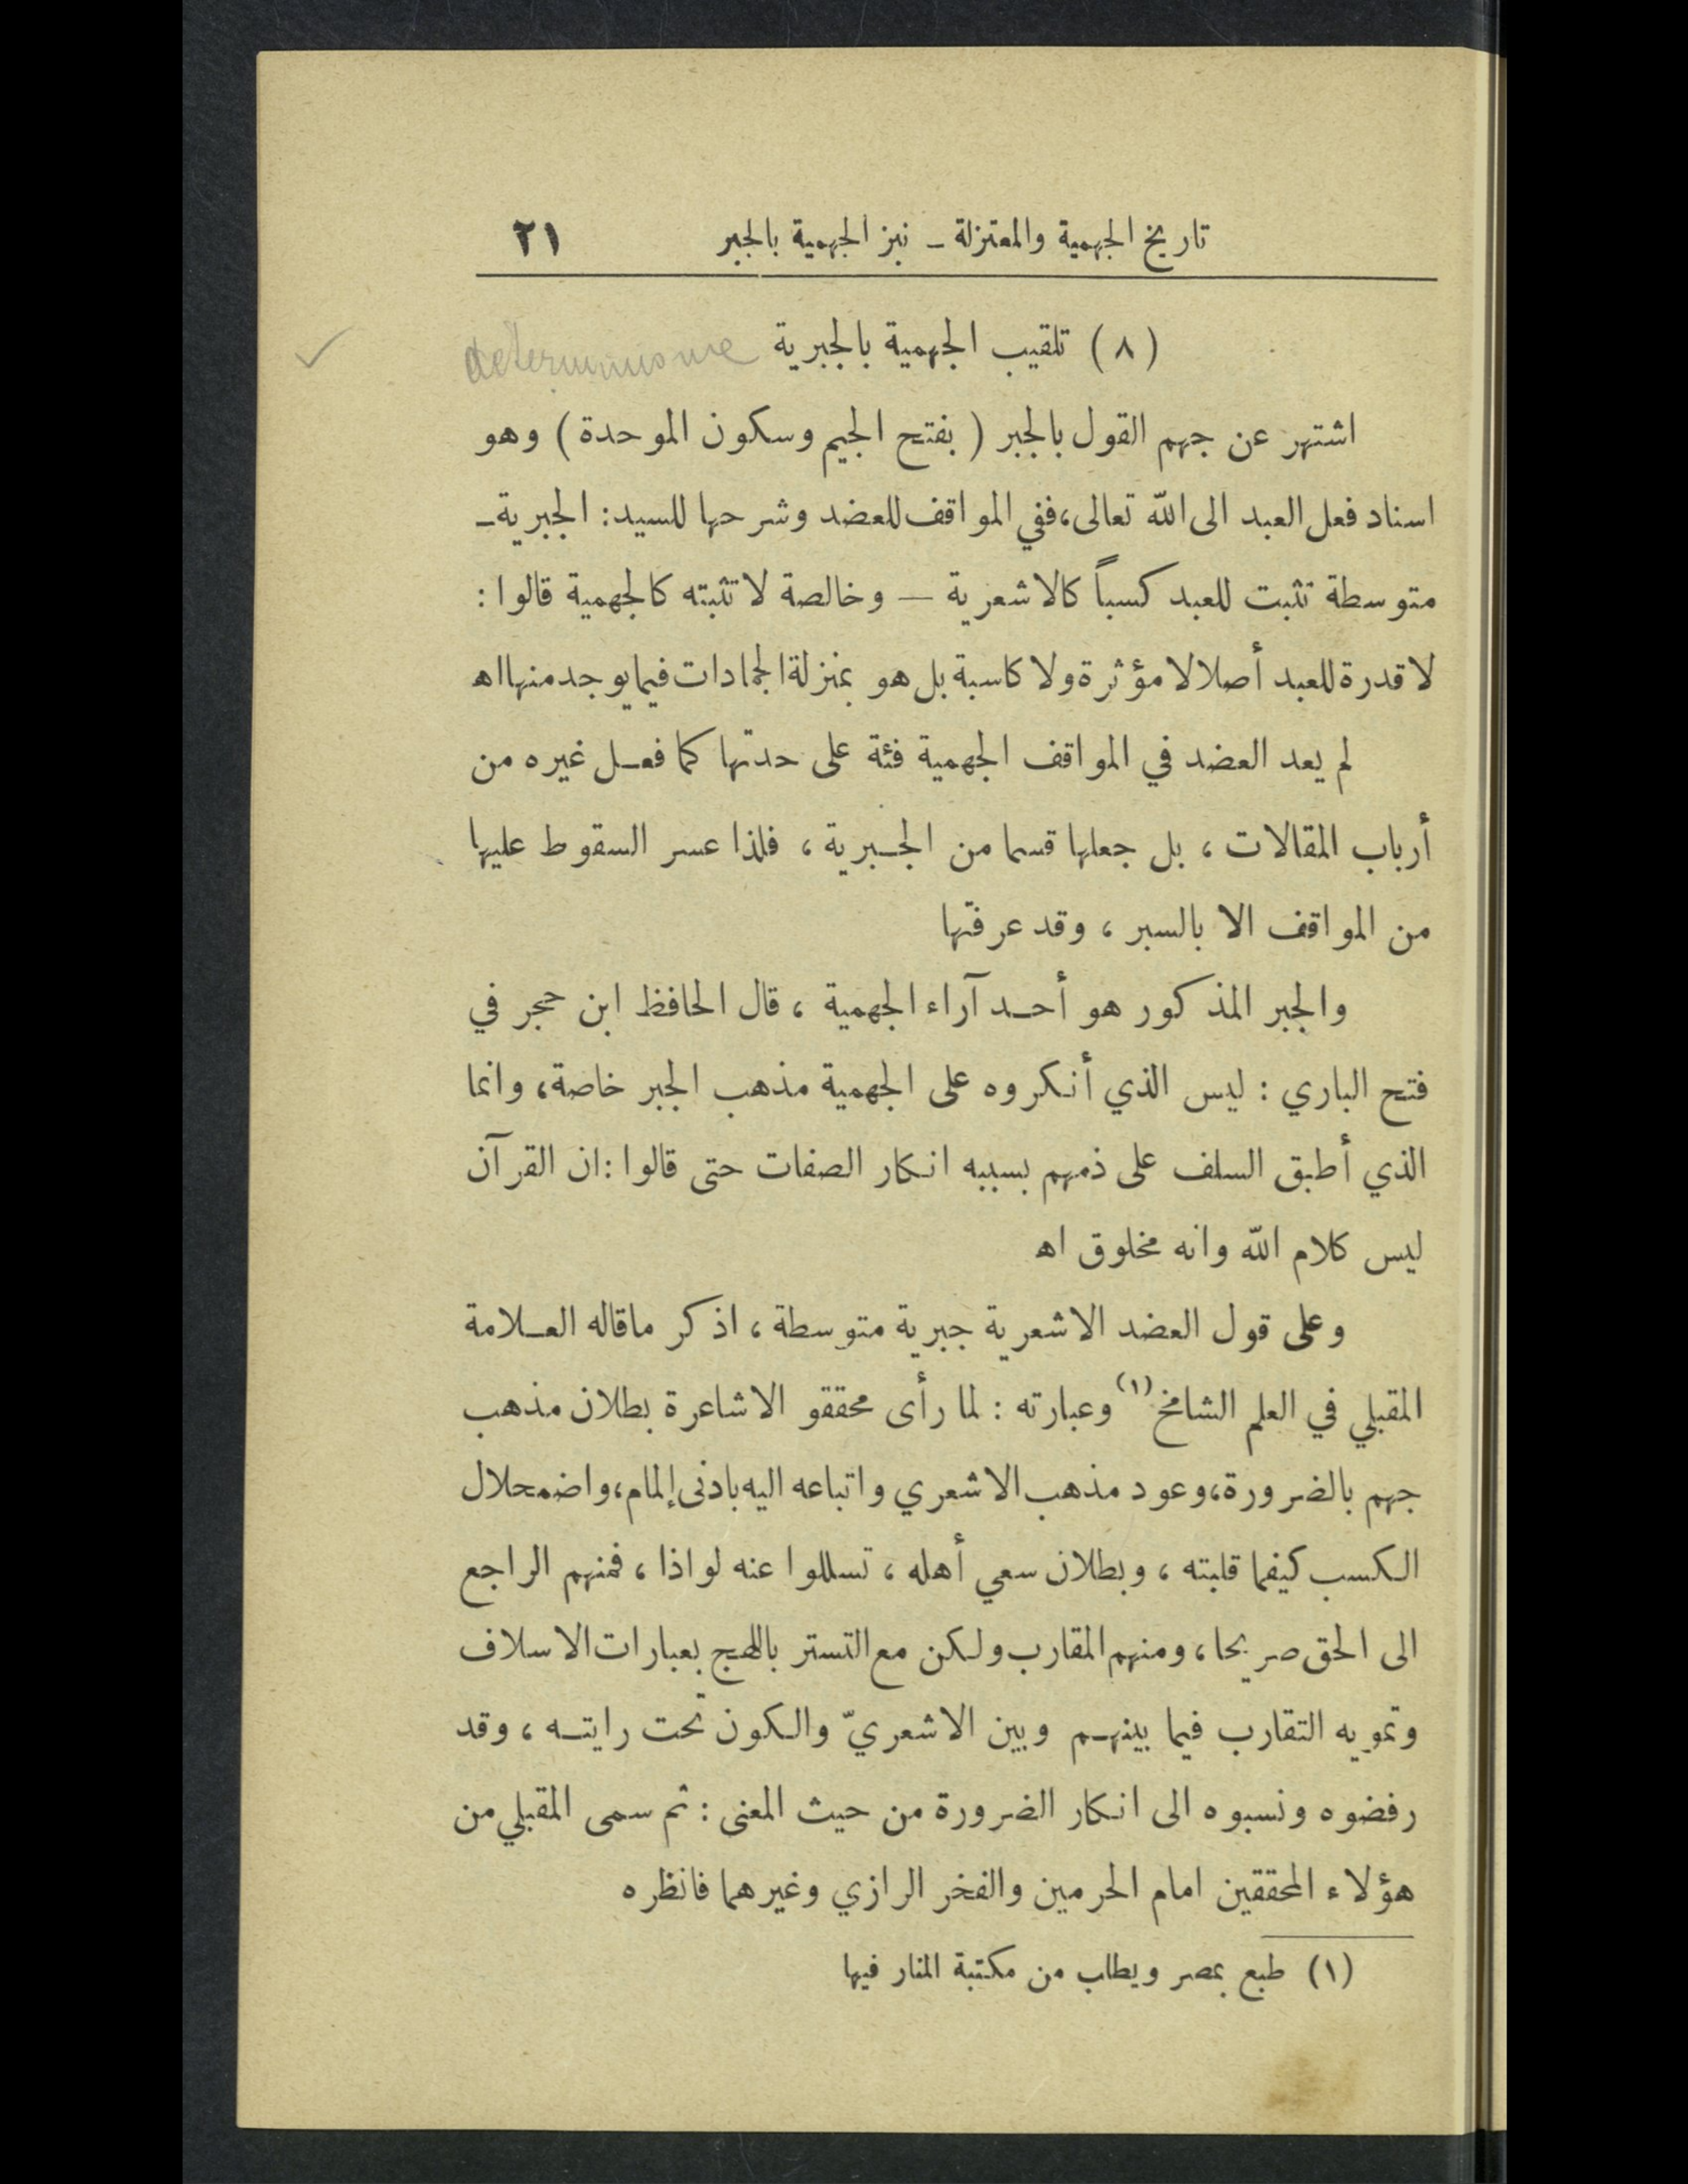 تاريخ الجهمية والمعتزلة ـ نبز الجهمية بالجبر ٢١
(٨) تلقيب الجهمية بالجبرية
اشتهر عن جهم القول بالجبر ( بفتح الجيم وسكون الموحدة ) وهو
اسناد فعل العبد الى الله تعالى، ففي المواقف للعضد وشرحها للسيد: الجبرية ـ
متوسطة تثبت للعبد كسباً كالاشعرية — وخالصة لا تثبته كالجهمية قالوا :
لا قدرة للعبد أصلا لا مؤثرة ولا كاسبة بل هو بمنزلة الجمادات فيما يوجد منها اهـ
لم يعد العضد في المواقف الجهمية فئة على حدتها كما فعل غيره من
أرباب المقالات ، بل جعلها قسما من الجبرية ، فلذا عسر السقوط عليها
من المواقف الا بالسبر ، وقد عرفتها
والجبر المذكور هو أحد آراء الجهمية ، قال الحافظ ابن حجر في
فتح الباري : ليس الذي أنكروه على الجهمية مذهب الجبر خاصة، وانما
الذي أطبق السلف على ذمهم بسببه انكار الصفات حتى قالوا : ان القرآن
ليس كلام الله وانه مخلوق اهـ
وعلى قول العضد الاشعرية جبرية متوسطة ، اذكر ماقاله العلامة
المقبلي في العلم الشامخ (١) وعبارته : لما رأى محققو الاشاعرة بطلان مذهب
جهم بالضرورة، وعود مذهب الاشعري واتباعه اليه بادنى إلمام، واضمحلال
الكسب كيفما قلبته ، وبطلان سعي أهله ، تسللوا عنه لواذا ، فمنهم الراجع
الى الحق صريحا ، ومنهم المقارب ولكن مع التستر باللهج بعبارات الاسلاف
وتمويه التقارب فيما بينهم وبين الاشعريّ والكون تحت رايته ، وقد
رفضوه ونسبوه الى انكار الضرورة من حيث المعنى : ثم سمى المقبلي من
هؤلاء المحققين امام الحرمين والفخر الرازي وغيرهما فانظره
(١) طبع بمصر ويطلب من مكتبة المنار فيها